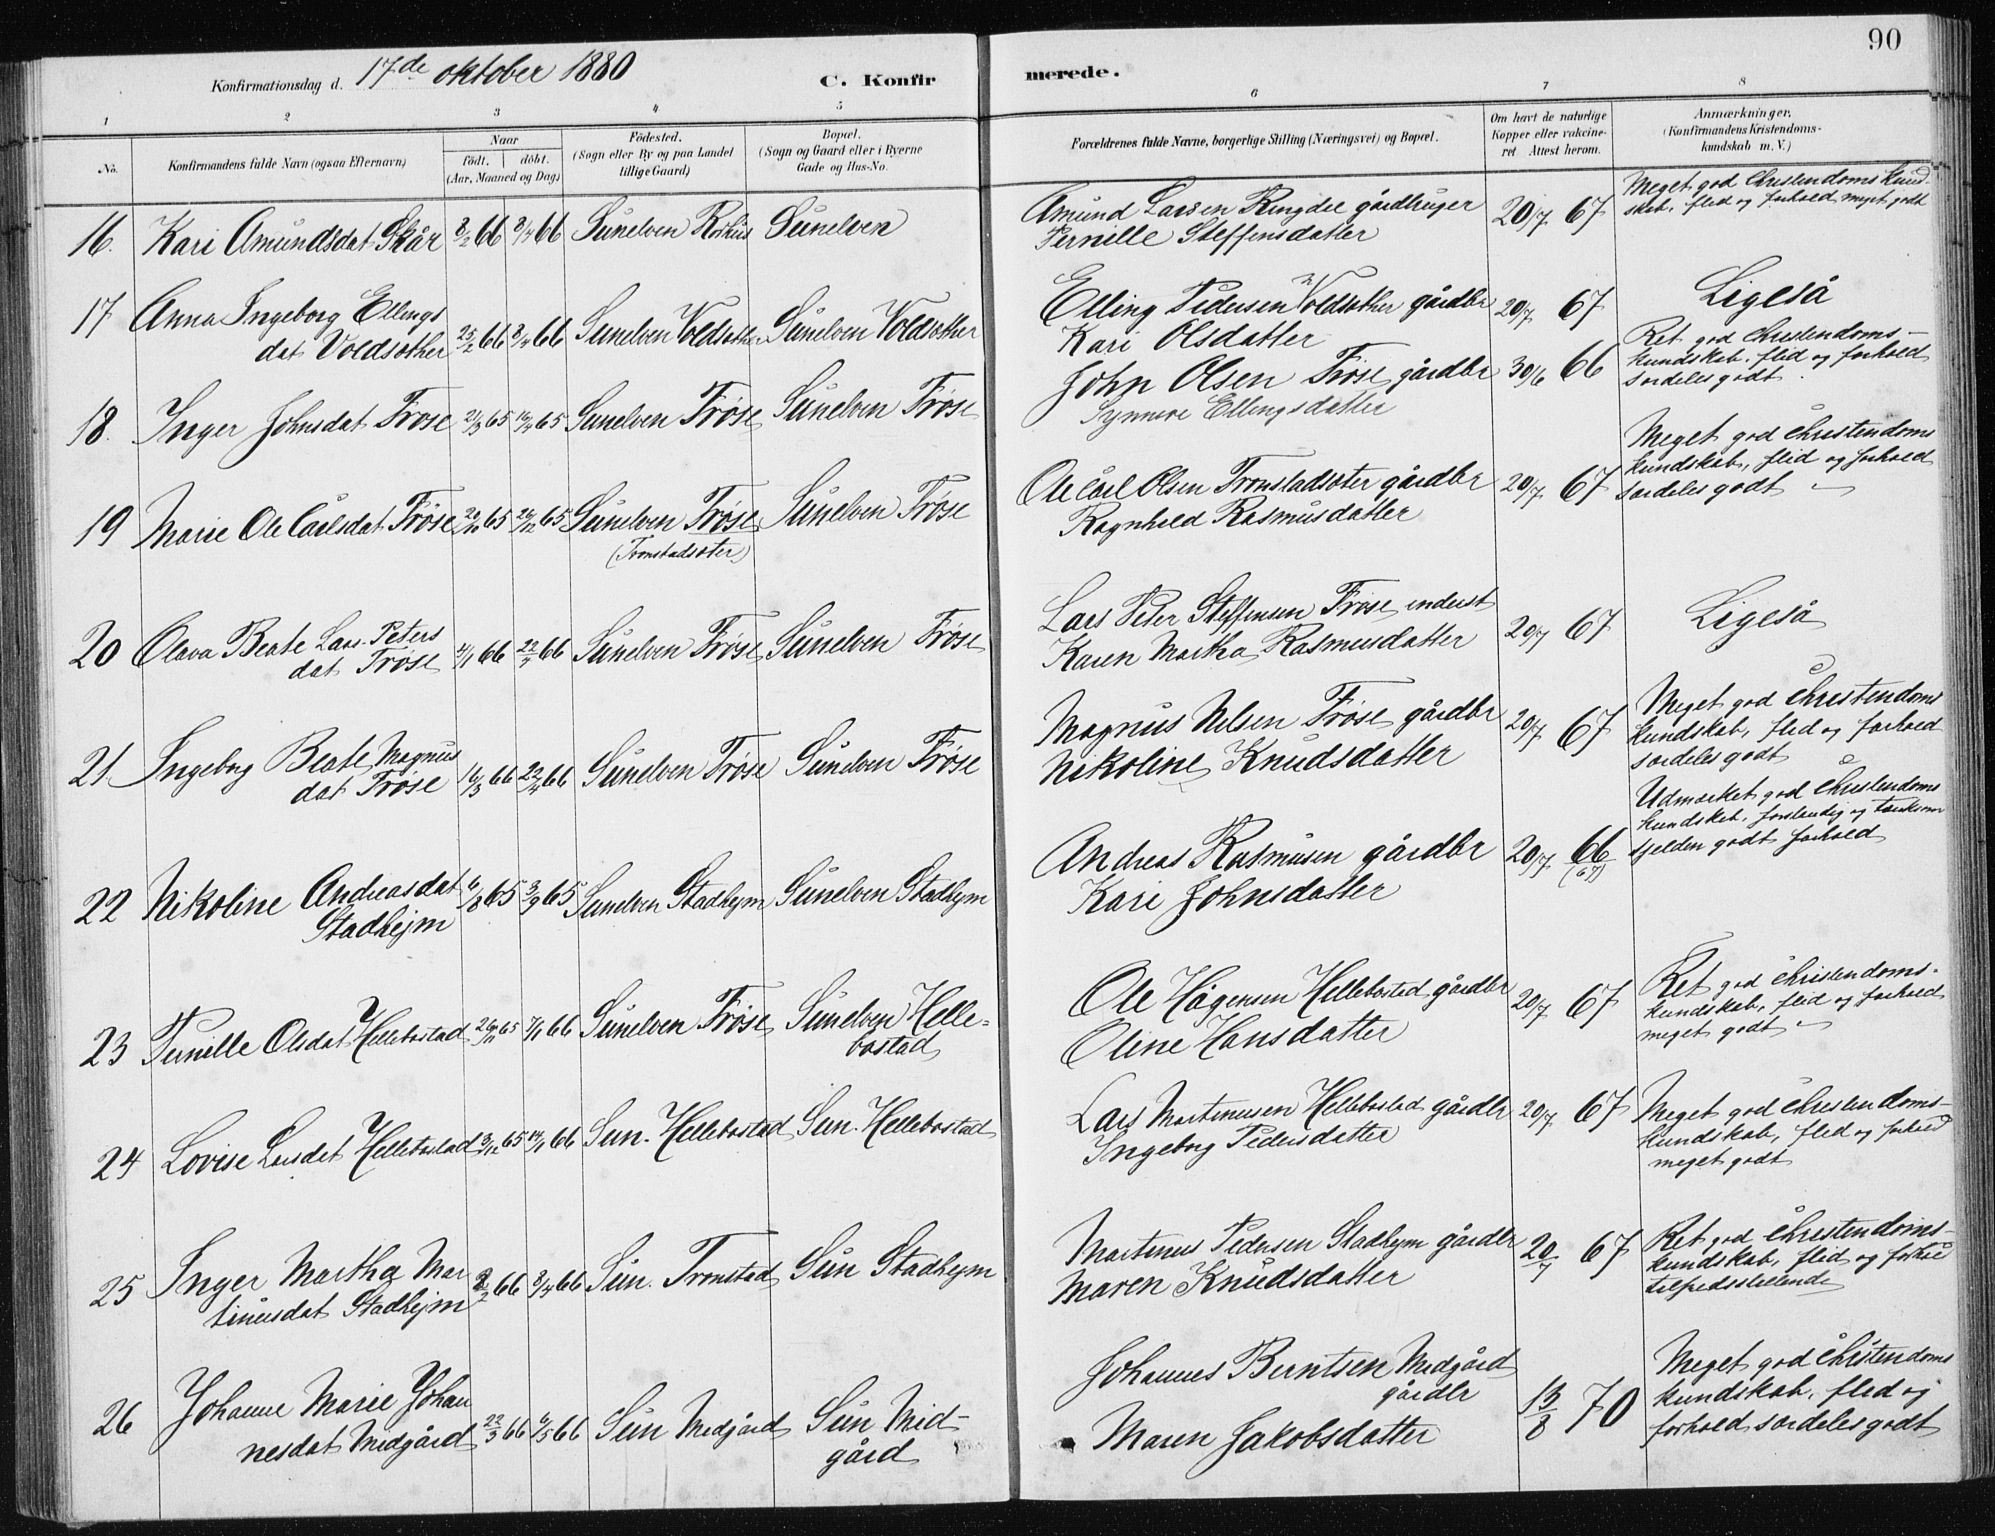 90
Konfirmationsdag d. 17de oktober 1880
C. Konfir
merede.
1 2 3 4 5 6 7 8
No.
Konfirmandens fulde Navn (ogsaa Efternavn)
Naar
födt. döbt.
(Aar, Maaned og Dag)
Födested.
(Sogn eller By og paa Landet
tillige Gaard)
Bopæl.
(Sogn og Gaard eller i Byerne
Gade og Hus-No.
Forældrenes fulde Navne, borgerlige Stilling (Næringsvei) og Bopæl.
Om havt de naturlige
Kopper eller vakcine-
ret Attest herom.
Anmærkninger.
(Konfirmandens Kristendoms-
kundskab m. V.)
16. Kari Amundsdat Skår 8/2 66 8/4 66 Sunelven Sunelven
Amund Larsen Ringdee gårdbruger 20/7 67
Pernille Steffensdatter
Meget god Christendomskund-
skab, flid og forhold meget godt
17 Anna Ingeborg Ellings
dat Voldsæther 25/2 66 8/4 66 Sunelven Voldsæther Sunelven Voldsæther
Elling Pedersen Voldsæther gårdbr 20/7 67
Kari Olsdatter
Ligeså
18. Inger Johnsdat Frøse 21/3 65 16/4 65 Sunelven Frøse Sunelven Frøse
John Olsen Frøse gårdbr 30/6 66
Synneve Ellingsdatter
Ret god Christendoms-
kundskab, flid og forhold
særdeles godt.
19 Marie Ole Carlsdat Frøse 65 65 Sunelven Frøse Sunelven Frøse
(Tronstadsæter)
Ole Carl Olsen Tronstadsæter gårdbr 20/7 67
Ragnhild Rasmusdatter
Meget god Christendoms
kundskab, flid og forhold
særdeles godt
20 Olava Beate Lars-Peters
dat Frøse 66 66 Sunelven Frøse Sunelven Frøse
Lars Peter Steffensen Frøse inderst 20/7 67
Karen Martha Rasmusdatter
Ligeså
21 Ingeborg Beate Magnus
dat Frøse 16/3 66 22/4 66 Sunelven Frøse Sunelven Frøse
Magnus Nilsen Frøse gårdbr 20/7 67
Nikoline Knudsdatter
Meget god Christendoms
kundskab, flid og forhold
særdeles godt
22 Nikoline Andreasdat
Stadhejm 6/8 65 3/9 65 Sunelven Stadhejm Sunelven Stadhejm
Andreas Rasmusen gårdbr 20/7 66
(67)
Kari Johnsdatter
Udmærket god Christendoms
kundskab, forstandig og tænksom
sjelden godt forhold
23 Pernille Olsdat Hellebostad 26/11 65 7/1 66 Sunelven Frøse Sunelven Helle-
bostad
Ole Hågensen Hellebostad gårdbr 20/7 67
Oline Hansdatter
Ret god Christendoms-
kundskab, flid og forhold
meget godt
24 Lovise Larsdat Hellebostad 3/12 65 14/1 66 Sun. Hellebostad Sun. Hellebostad
Lars Martinusen Hellebostad gårdbr 20/7 67
Ingeborg Pedersdatter
Meget god Christendoms-
kundskab, flid og forhold
meget godt
25 Inger Martha Mar
tinusdat Stadhejm 66 8/4 66 Sun. Tronstad Sun Stadhejm
Martinus Pedersen Stadhejm gårdbr 20/7 67
Maren Knudsdatter
Ret god Christendoms-
kundskab, flid og forhold
tilfredsstillende
26 Johanne Marie Johan
nesdat Midgård 22/3 66 6/5 66 Sun Midgård Sun Mid-
gård
Johannes Berntsen Midgård
gårdbr 13/8 70
Maren Jakobsdatter
Meget god Christendoms
kundskab, flid og
forhold særdeles godt